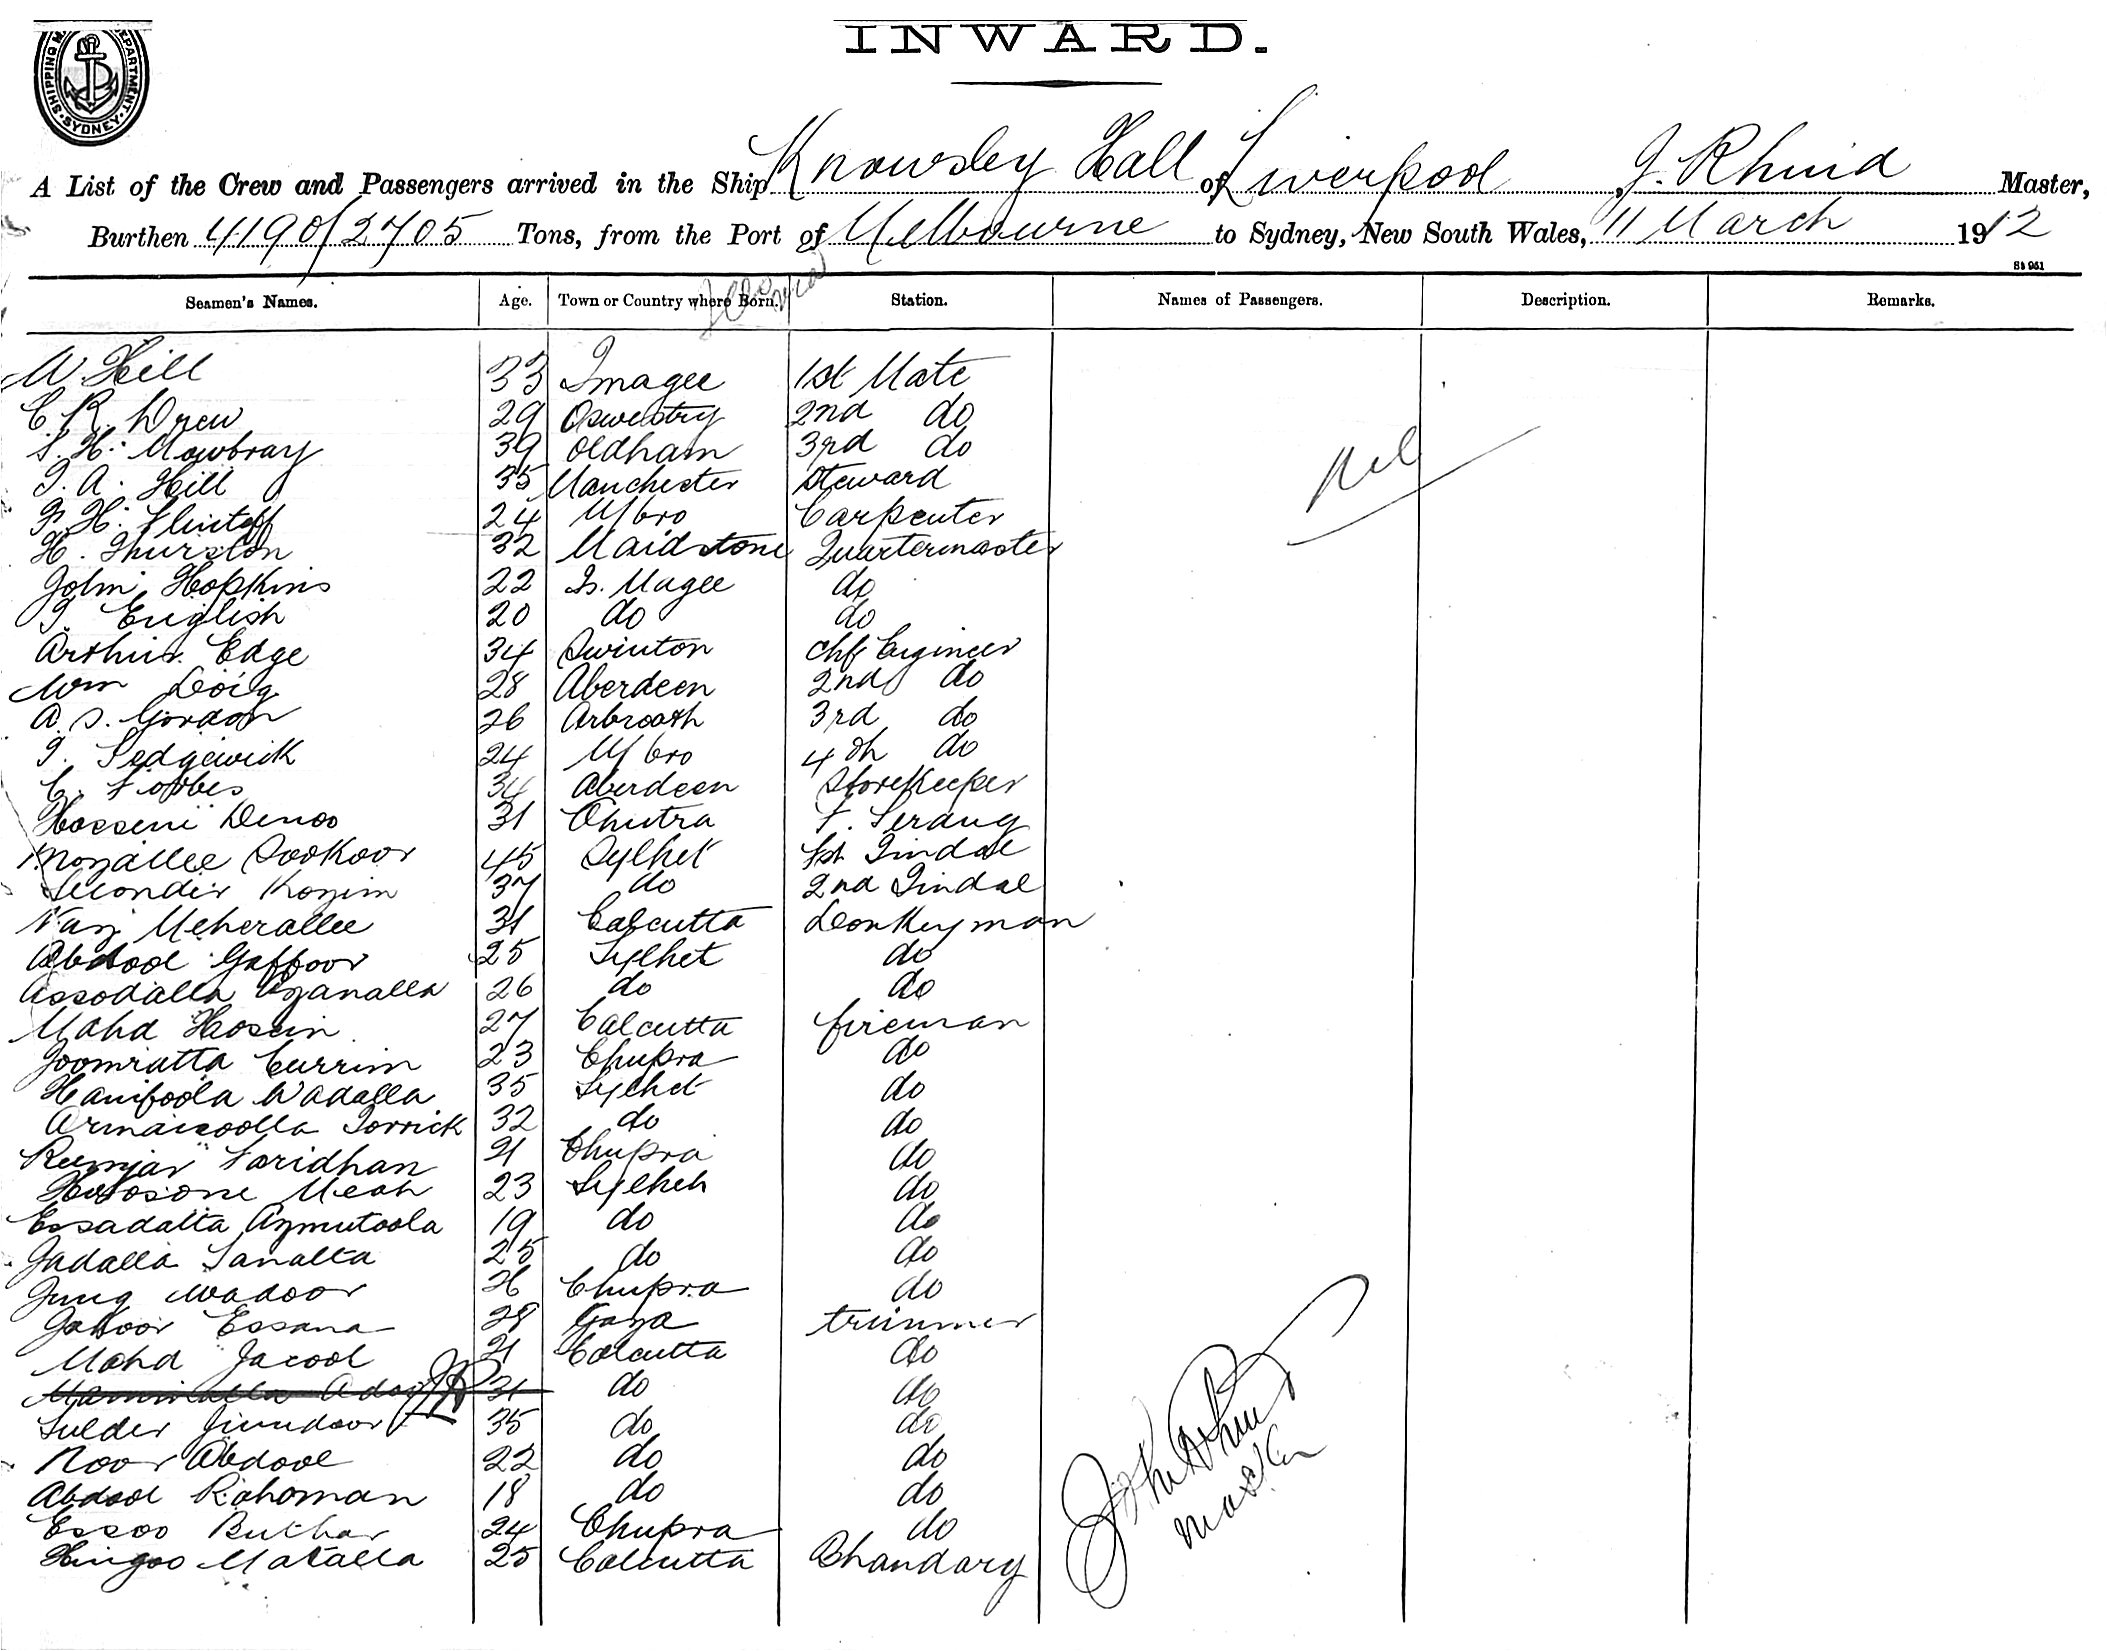 INWARD.
SHIPPING M DEPARTMENT SYDNEY
A List of the Crew and Passengers arrived in the Ship Knowsley Hall of Liverpool, J. Rhind Master,
Burthen 4190/2705 Tons, from the Port of Melbourne to Sydney, New South Wales, 11 March 1912
Seamen's Names. Age. Town or Country where Born. Station. Names of Passengers. Description. Remarks.
W Hill 33 Imagee 1st Mate
C. R. Drew 29 Oswestry 2nd do
S. H. Mowbray 39 Oldham 3rd do
T. A. Hill 35 Manchester Steward
Nil
F. H. Flintoff 24 M/bro Carpenter
H. Thurston 32 Maidstone Quartermaster
John Hopkins 22 Is. Magee do
T. English 20 do do
Arthur Edge 34 Swinton Chf Engineer
Wm Doig 28 Aberdeen 2nd do
A. S. Gordon 26 Arbroath 3rd do
T. Sedgewick 24 M/bro 4th do
C. Forbes 34 Aberdeen Storekeeper
Hosseni Denoo 31 Chutra F. Serang
Mozallee Sookoor 45 Sylhet 1st Tindal
Secondir Kozim 37 do 2nd Tindal
Nazj Meherallee 31 Calcutta Donkeyman
Abdool Gaffoor 25 Sylhet do
Assodalla Ozanalla 26 do do
Mahd Hosein 27 Calcutta fireman
Joomratta Currim 23 Chupra do
Hanifoola Wadalla 35 Sylhet do
Armaisoolla Torrick 32 do do
Rumjar Faridhan 21 Chupra do
Meah 23 Sylhet do
Essadalla Azmutoola 19 do do
Jadalla Sanalla 25 do do
Jung Wadoor Chupra do
Gafoor Essana 28 Gaya trimmer
Mahd Jacool 21 Calcutta do
31 do do
Sulder Jiundoor 35 do do
Noor Abdool 22 do do
Abdool Rahoman 18 do do
Essoo Buthar 24 Chupra do
Hingoo Matalla 25 Calcutta Bhandary
John Rhind
Master